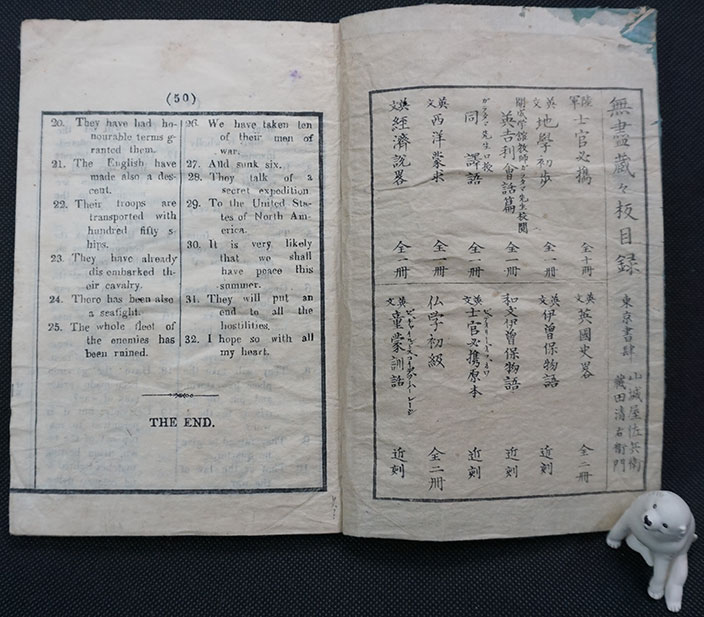 (50)
20. They have had ho-
nourable terms g-
ranted them.
21. The English have
made also a des-
cent.
22. Their troops are
transported with
hundred fifty s-
hips.
23. They have already
dis embarked th-
eir cavalry.
24. There has been also
a seafight.
25. The whole fleet of
the enemies has
been rained.
26. We have taken ten
of their men of
war.
27. And sunk six.
28. They talk of a
secret expedition
29. To the United Sta-
tes of North Am-
erica.
30. It is very likely
that we shall
have peace this
summer.
31. They will put an
end to all the
hostilities.
32. I hope so with all
my heart.
THE END.
無盡蔵々板目録 東京書肆 山城屋佐兵衛
田清右衛門
陸軍 士官必携 全十冊
英文 地學初歩 全一冊
教師ガラタマ先生校閲 英吉利會話篇 全一冊
ガラタマ先生口授 同 譯語 全一冊
英文 西洋蒙求 全一冊
英文 経済説畧 全一冊
英文 英國史畧 全二冊
英文 伊曽保物語 近刻
和文伊曽保物語 近刻
英文 士官必携原本 近刻
仏学初級 全二冊
英文 童蒙訓話 近刻